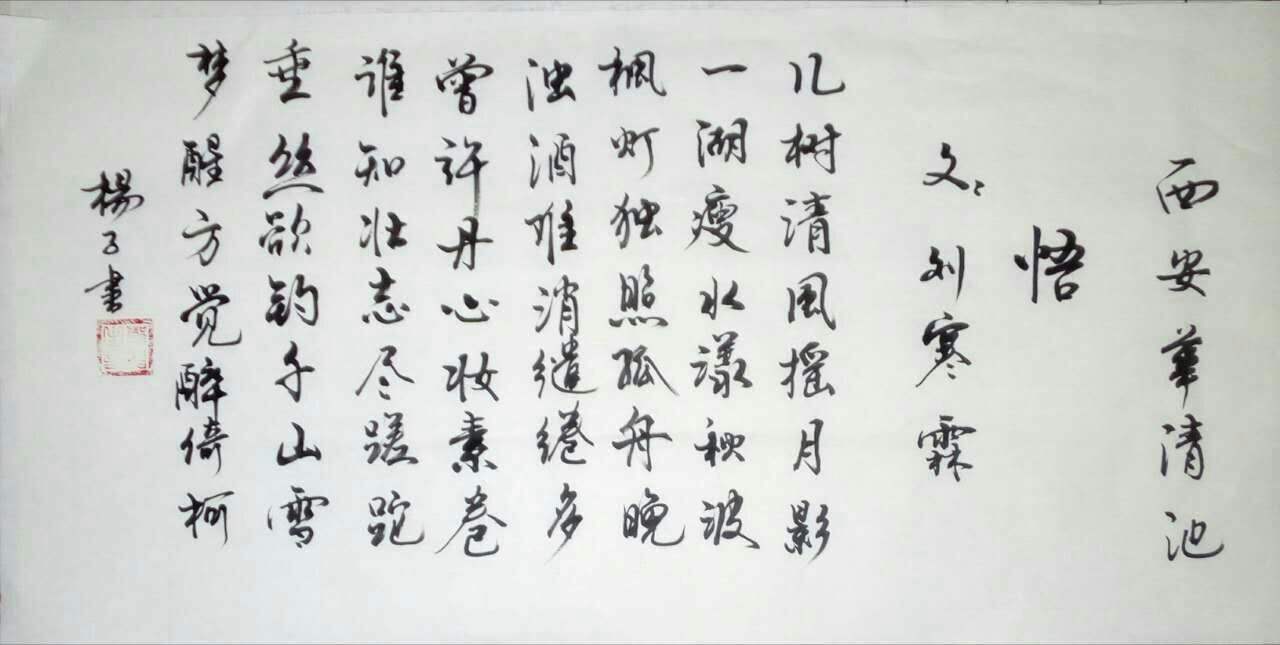 西安華清池
悟
文:刘寒霖
几树清风摇月影
一湖瘦水漾秋波
枫灯独照孤舟晚
浊酒难消缱绻多
曾许丹心妆素卷
谁知壮志尽蹉跎
垂丝欲钓千山雪
梦醒方觉醉倚柯
楊子書